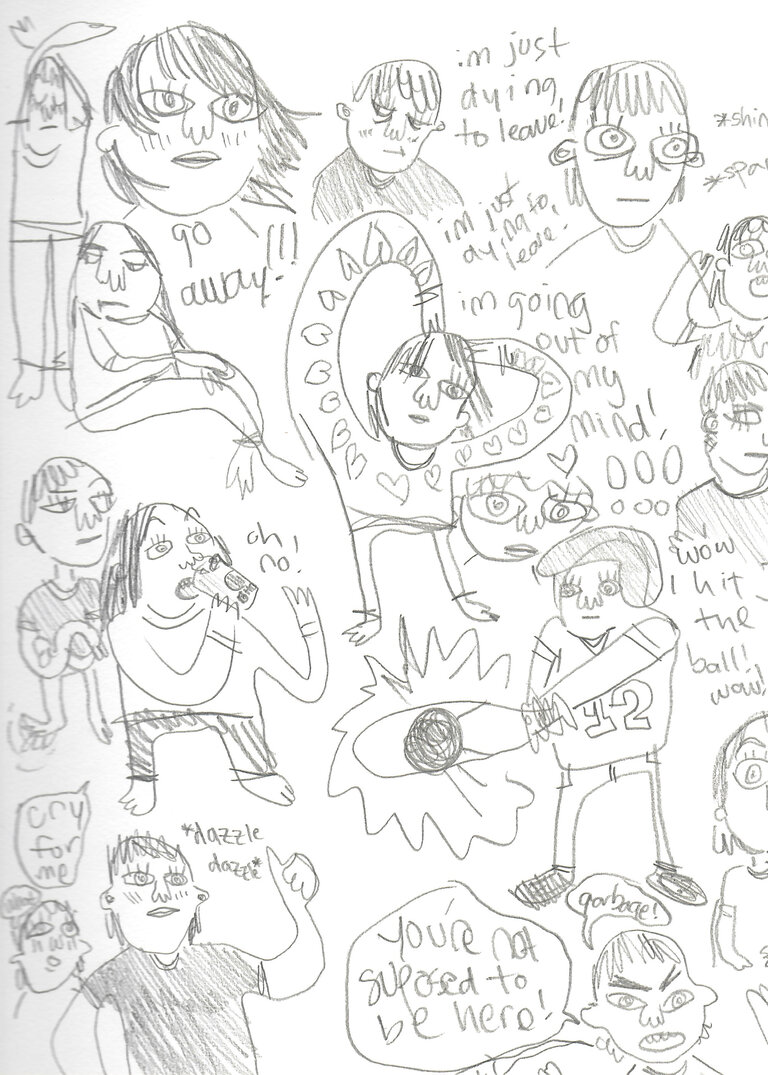 im just
dying
to leave!
*shin
*spar
im just
dying to,
leave.
go
away-!!!
im going
out of
my
mind!
oh
no!
wow
I hit
the
ball!
wow!
12
cry
for
me
*dazzle
dazzle*
garbage!
You're not
suposed to
be here!